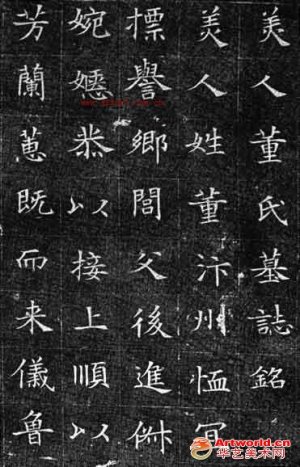 美人董氏墓誌銘
美人姓董汴州恤冝
摽譽鄉閭父後進俶
婉嬺恭以接上順以
芳蘭蕙既而来儀魯
Artworld.cn
华艺美术网